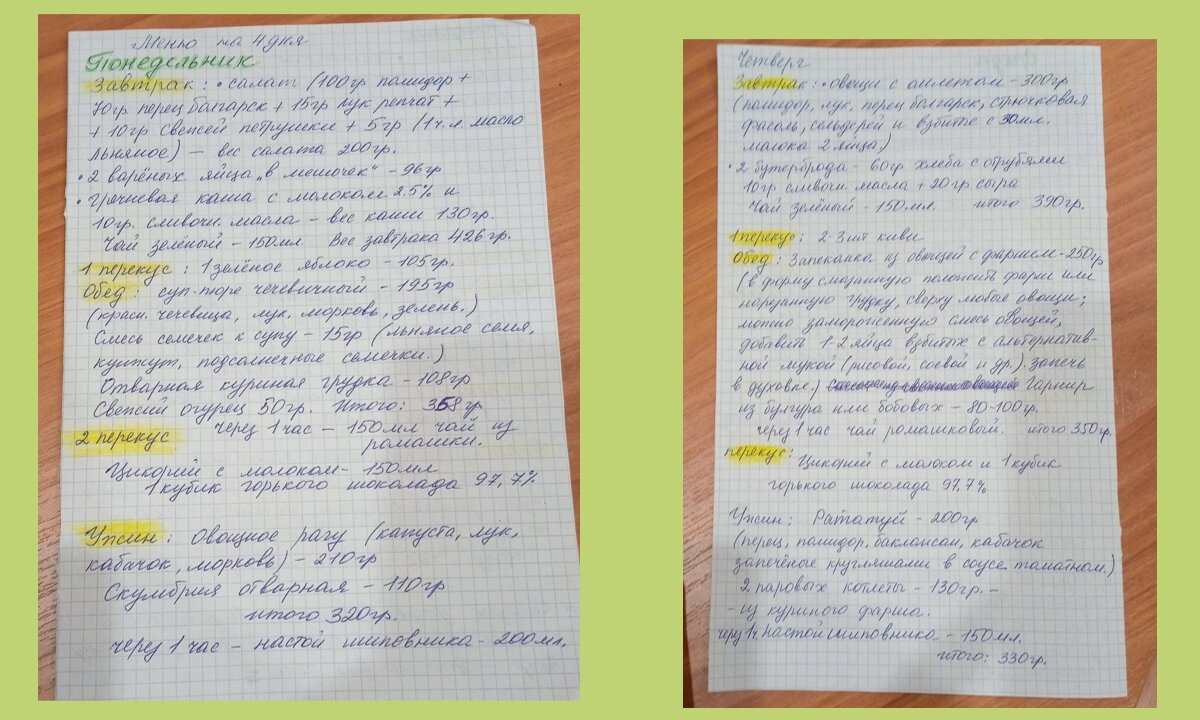 Меню на 4 дня
Понедельник
Завтрак: • салат (100гр помидор +
70гр перец болгарск + 15гр лук репчат +
+ 10гр свежей петрушки + 5гр (1ч.л. масло
льняное) — вес салата 200гр.
• 2 варёных яйца „в мешочек" – 96гр
• Гречневая каша с молоком 2.5% и
10гр. сливочн. масла – вес каши 130гр.
Чай зелёный – 150мл Вес завтрака 426гр.
1 перекус: 1 зелёное яблоко – 105гр.
Обед: суп-пюре чечевичный – 195гр
(красн. чечевица, лук, морковь, зелень.)
Смесь семечек к супу – 15гр (льняное семя,
кунжут, подсолнечные семечки.)
Отварная куриная грудка – 108гр
Свежий огурец 50гр. Итого: 368гр
через 1 час – 150мл чай из
ромашки.
2 перекус
Цикорий с молоком – 150мл
1 кубик горького шоколада 97,7%
Ужин: Овощное рагу (капуста, лук,
кабачок, морковь) – 210гр
Скумбрия отварная – 110гр
итого 320гр.
через 1 час – настой шиповника – 200мл.
Четверг
Завтрак: • овощи с омлетом – 300гр
(помидор, лук, перец болгарск, стручковая
фасоль, сельдерей и взбитые с 30мл.
молока 2 яйца)
• 2 бутерброда – 60гр хлеба с отрубями
10гр сливочн. масла + 20гр сыра
Чай зелёный – 150мл. итого 390гр.
1 перекус: 2-3 шт киви
Обед: Запеканка из овощей с фаршем – 250гр
(в форму смазанную положить фарш или
нарезанную грудку, сверху любые овощи;
можно замороженную смесь овощей,
добавить 1-2 яйца взбитых с альтернатив-
ной мукой (рисовой, соевой и др.). запечь
в духовке.) Гарнир
из булгура или бобовых – 80-100гр.
через 1 час чай ромашковый. итого 350гр.
перекус:
Цикорий с молоком и 1 кубик
горького шоколада 97.7%
Ужин: Рататуй – 200гр
(перец, помидор, баклажан, кабачок
запечёные кругляшами в соусе томатном.)
2 паровых котлеты – 130гр. –
– из куриного фарша.
через 1ч. настой шиповника – 150мл.
итого: 330гр.